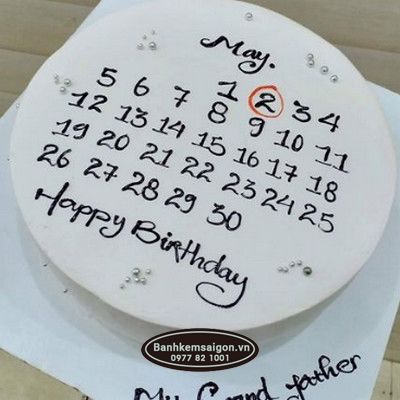 May.
1 2 3 4
5 6 7 8 9 10 11
12 13 14 15 16 17 18
19 20 21 22 23 24 25
26 27 28 29 30
Happy Birthday
Banhkemsaigon.vn
0977 82 1001
My Grand father